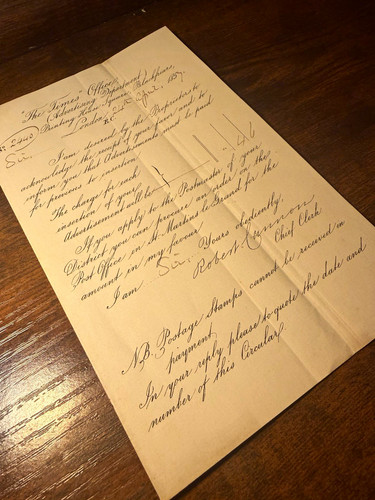 "The Times" Office,
(Advertising Department)
Printing House Square, Blackfriars,
London, E.C.
Sir,
I am desired by the Proprietors to
acknowledge the receipt of your favor, and to
inform you that Advertisements must be paid
for previous to insertion.
The charge for each
insertion of your
Advertisement will be £
If you apply to the Postmaster of your
District you can procure an order on the
Post Office in St. Martins le Grand for the
amount in my favour.
I am Sir, Yours obediently,
Robert
Chief Clerk
N.B. Postage Stamps cannot be received in
payment
In your reply please to quote the date and
number of this Circular.